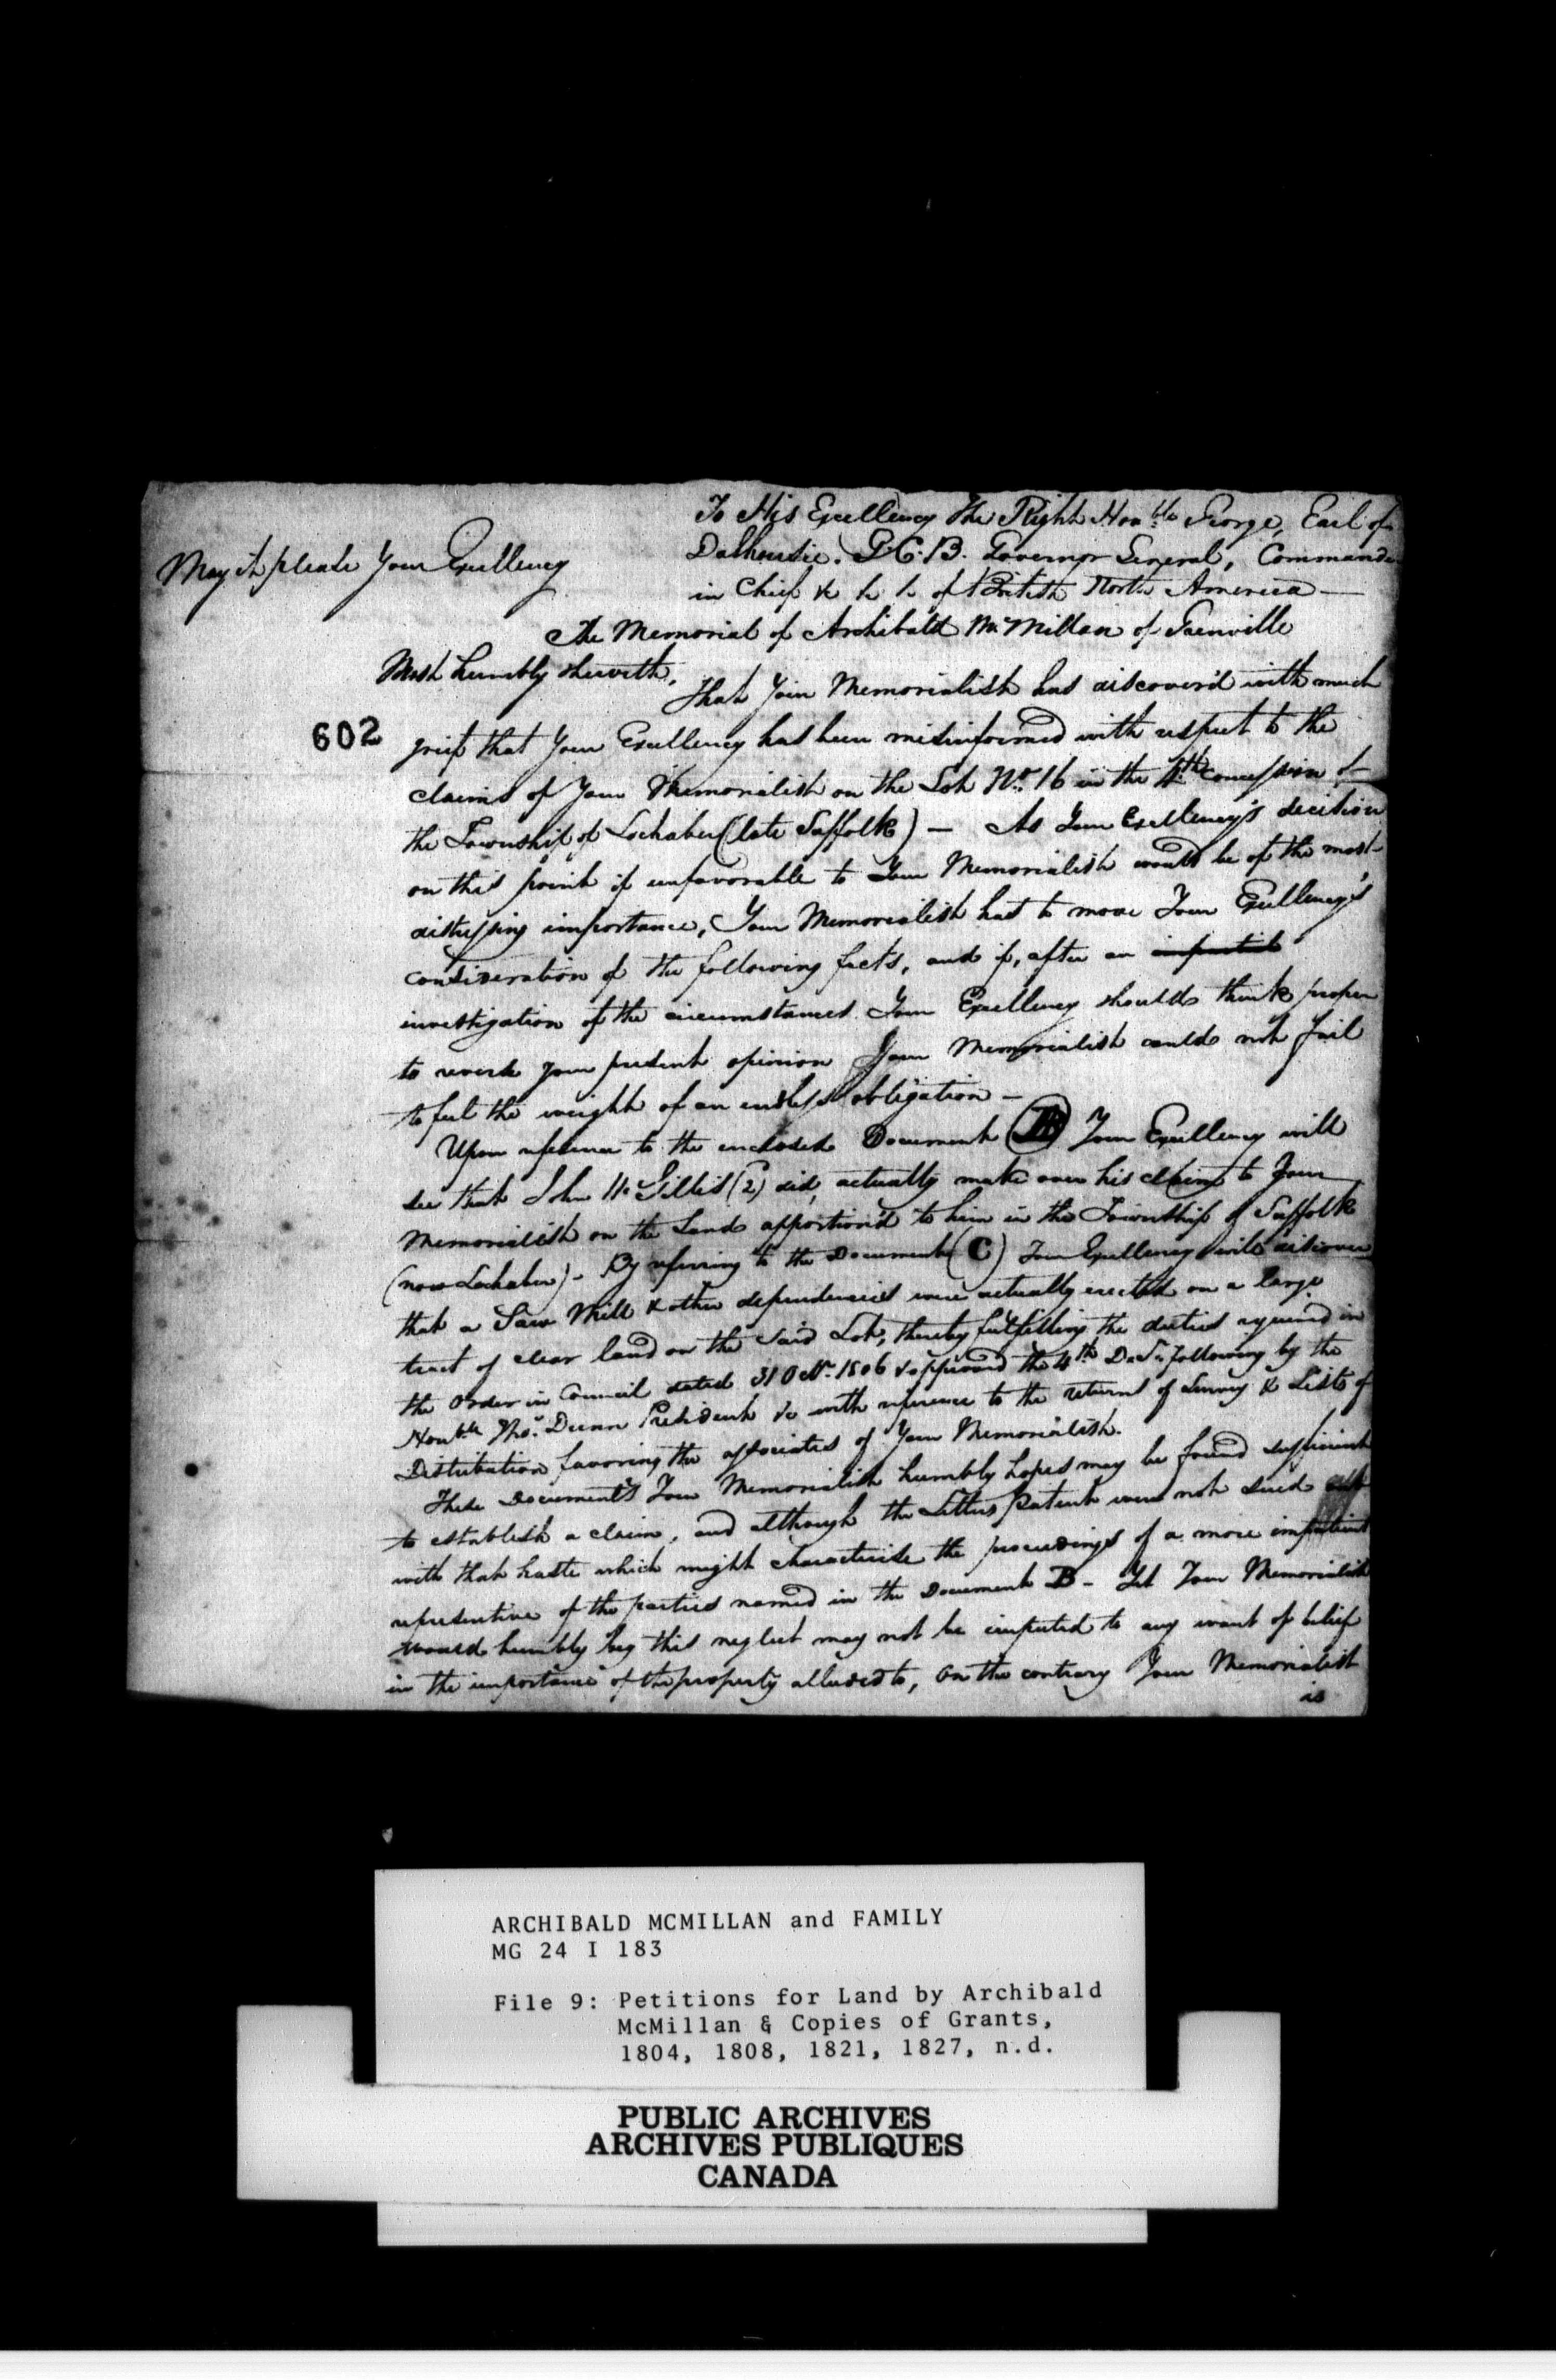 To His Excellency The Right Honble George, Earl of
Dalhousie. G.C.B. Governor General, Commander
in Chief &c &c &c of British North America —
May it please Your Excellency
The Memorial of Archibald McMillan of Grenville
Most humbly sheweth,
That Your Memorialist has discover'd with much
602
grief that Your Excellency has been misinformed with respect to the
claims of Your Memorialist on the Lot No. 16 in the 4th concession of
the Township of Lochaber (late Suffolk) — As Your Excellency's decision
on this point if unfavorable to Your Memorialist would be of the most
distressing importance, Your Memorialist has to move Your Excellency's
consideration of the following facts, and if, after an impartial
investigation of the circumstances Your Excellency should think proper
to revoke your present opinion Your Memorialist could not fail
to feel the weight of an endless obligation —
Upon reference to the enclosed Document (B) Your Excellency will
see that John McGillis (2) did, actually make over his claim to Your
Memorialist on the Land apportion'd to him in the Township of Suffolk
(now Lochaber) - By referring to the Document (C) Your Excellency will discover
that a Saw Mill & other dependencies were actually erected on a large
tract of clear land on the said Lot, thereby fulfilling the duties required in
the Order in Council dated 31 Octr. 1806 & approved the 4th Decr. following by the
Honble Thos. Dunn President &c with reference to the returns of Survey & Lists of
Distribution favoring the associates of Your Memorialist.
These Documents Your Memorialist humbly hopes may be found sufficient
to establish a claim, and although the Letters Patent were not sued out
with that haste which might characterise the proceedings of a more impatient
representive of the parties named in the Document B - Yet Your Memorialist
would humbly beg this neglect may not be imputed to any want of belief
in the importance of the property alluded to, On the contrary Your Memorialist
is
ARCHIBALD MCMILLAN and FAMILY
MG 24 I 183
File 9: Petitions for Land by Archibald
McMillan & Copies of Grants,
1804, 1808, 1821, 1827, n.d.
PUBLIC ARCHIVES
ARCHIVES PUBLIQUES
CANADA